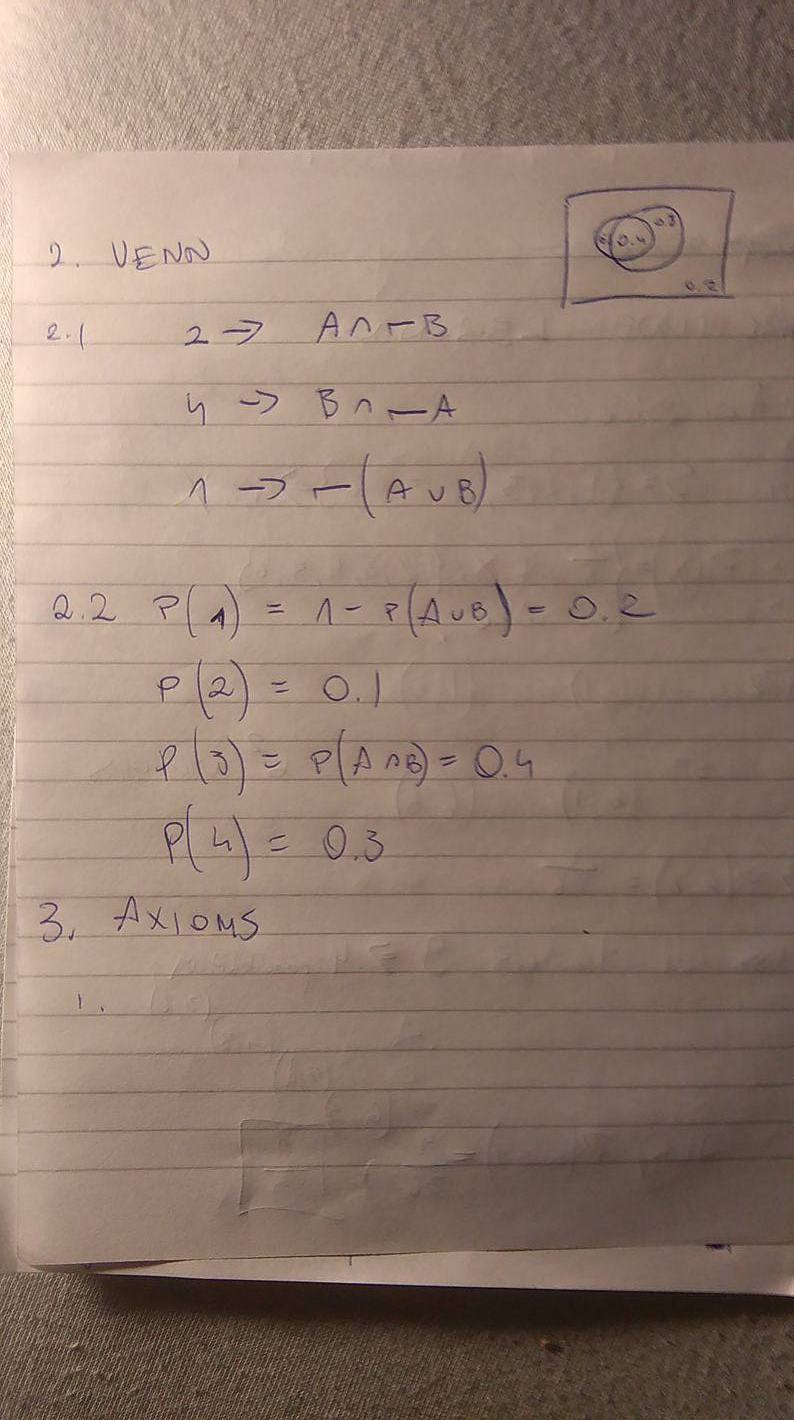 2. VENN
0.3
0.4
0.2
2.1 2 → A∩¬B
4 → B∩¬A
1 → ¬(A∪B)
2.2 P(1) = 1 - P(A∪B) = 0.2
P(2) = 0.1
P(3) = P(A∩B) = 0.4
P(4) = 0.3
3. AXIOMS
1.